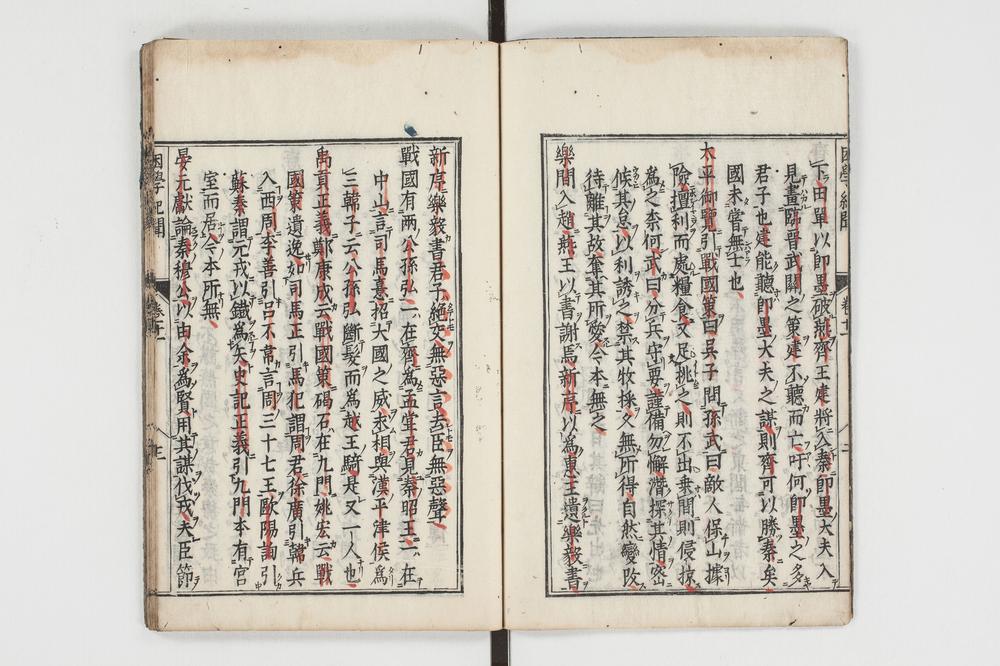 困學紀聞
卷十一
下田單以即墨破燕齊王建將入秦即墨大夫入
見畫臨晉武關之策建不聽而亡吁何即墨之多
君子也建能聽即墨大夫之謀則齊可以勝秦矣
國未嘗無士也
太平御覽引戰國策曰吳子問孫武曰敵人保山據
險擅利而處糧食又足挑之則不出乘間則侵掠
為之柰何武曰分兵守要謹備勿懈潛探其情密
候其怠以利誘之禁其牧採久無所得自然變改
待離其故奪其所愛今本無之
樂閒入趙燕王以書謝焉新序以為惠王遺樂毅書
新序樂毅書君子絕交無惡言去臣無惡聲
戰國有兩公孫弘一在齊為孟嘗君見秦昭王一在
中山言司馬憙招大國之威求相與漢平津侯為
三韓子云公孫弘斷髮而為越王騎是又一人也
禹貢正義鄭康成云戰國策碣石在九門姚宏云戰
國策遺逸如司馬正引馬犯謂周君徐廣引韓兵
入西周李善引呂不韋言周三十七王歐陽詢引
蘇秦謂元戎以鐵為矢史記正義引九門本有宮
室而居今本所無
晏元獻論秦穆公以由余為賢用其謀伐戎夫臣節
困學紀聞
卷十一